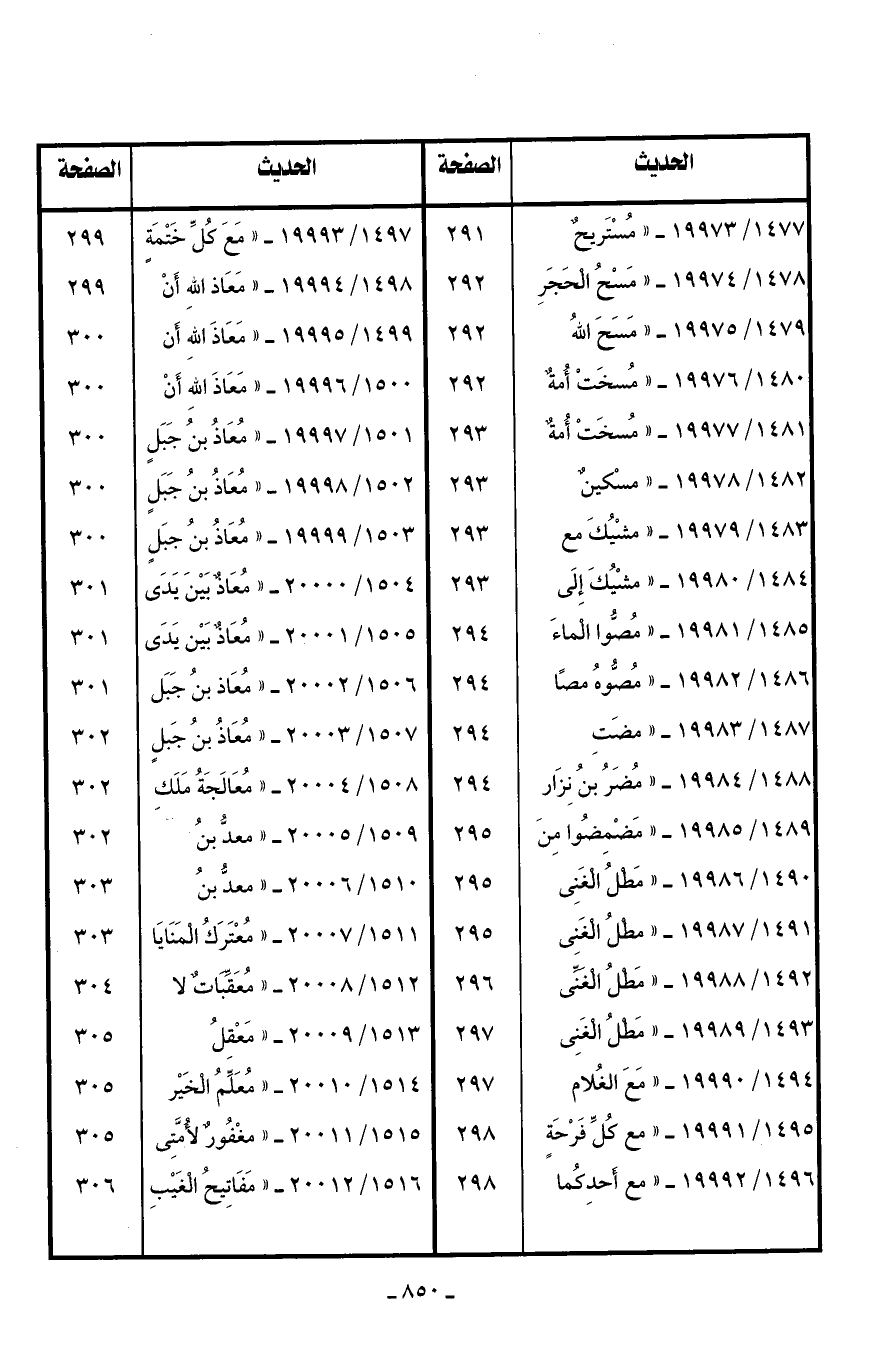 الحديث الصفحة الحديث الصفحة
١٤٧٧/ ١٩٩٧٣ ـ « مُسْتَرِيحٌ ٢٩١
١٤٧٨/ ١٩٩٧٤ ـ « مَسْحُ الْحَجَرِ ٢٩٢
١٤٧٩/ ١٩٩٧٥ ـ « مَسَحَ اللهُ ٢٩٢
١٤٨٠/ ١٩٩٧٦ ـ « مُسِخَتْ أُمةٌ ٢٩٢
١٤٨١/ ١٩٩٧٧ ـ « مُسِخَتْ أُمةٌ ٢٩٣
١٤٨٢/ ١٩٩٧٨ ـ « مِسْكينٌ ٢٩٣
١٤٨٣/ ١٩٩٧٩ ـ « مشْيُكَ مع ٢٩٣
١٤٨٤/ ١٩٩٨٠ ـ « مشْيُكَ إِلَى ٢٩٣
١٤٨٥/ ١٩٩٨١ ـ « مُصُّوا الْماءَ ٢٩٤
١٤٨٦/ ١٩٩٨٢ ـ « مُصُّوهُ مصًا ٢٩٤
١٤٨٧/ ١٩٩٨٣ ـ « مضَتِ ٢٩٤
١٤٨٨/ ١٩٩٨٤ ـ « مُضَرُ بنُ نِزَار ٢٩٤
١٤٨٩/ ١٩٩٨٥ ـ « مَضْمِضُوا مِنَ ٢٩٥
١٤٩٠/ ١٩٩٨٦ ـ « مَطْلُ الْغَنِى ٢٩٥
١٤٩١/ ١٩٩٨٧ ـ « مطْلُ الْغَنِى ٢٩٥
١٤٩٢/ ١٩٩٨٨ ـ « مَطْلُ الْغَنِّى ٢٩٦
١٤٩٣/ ١٩٩٨٩ ـ « مَطْلُ الْغَنِى ٢٩٧
١٤٩٤/ ١٩٩٩٠ ـ « مَعَ الغُلام ٢٩٧
١٤٩٥/ ١٩٩٩١ ـ « مع كُلِّ فَرْحَةٍ ٢٩٨
١٤٩٦/ ١٩٩٩٢ ـ « مع أَحدِكُما ٢٩٨
١٤٩٧/ ١٩٩٩٣ ـ « مَعَ كُلِّ خَتْمَةٍ ٢٩٩
١٤٩٨/ ١٩٩٩٤ ـ « مَعَاذ اللهِ أَنْ ٢٩٩
١٤٩٩/ ١٩٩٩٥ ـ « مَعَاذَ اللهِ أَن ٣٠٠
١٥٠٠/ ١٩٩٩٦ ـ « مَعَاذَ اللهِ أَنْ ٣٠٠
١٥٠١/ ١٩٩٩٧ ـ « مُعَاذُ بنُ جَبَلٍ ٣٠٠
١٥٠٢/ ١٩٩٩٨ ـ « مُعَاذُ بنُ جَبَلٍ ٣٠٠
١٥٠٣/ ١٩٩٩٩ ـ « مُعَاذُ بنُ جبَلٍ ٣٠٠
١٥٠٤/ ٢٠٠٠٠ ـ « مُعَاذٌ بَيْنَ يَدَى ٣٠١
١٥٠٥/ ٢٠٠٠١ ـ « مُعَاذٌ بَيْن يَدَى ٣٠١
١٥٠٦/ ٢٠٠٠٢ ـ « مُعَاذ بنُ جَبَل ٣٠١
١٥٠٧/ ٢٠٠٠٣ ـ « مُعَاذُ بنُ جَبَلٍ ٣٠٢
١٥٠٨/ ٢٠٠٠٤ ـ « مُعَالَجَةُ مَلَكِ ٣٠٢
١٥٠٩/ ٢٠٠٠٥ ـ « معدُّ بنُ ٣٠٢
١٥١٠/ ٢٠٠٠٦ ـ « معدُّ بنُ ٣٠٣
١٥١١/ ٢٠٠٠٧ ـ « مُعْتَرَكُ الْمَنَايَا ٣٠٣
١٥١٢/ ٢٠٠٠٨ ـ « مُعَقِّبَاتٌ لا ٣٠٤
١٥١٣/ ٢٠٠٠٩ ـ « مَعْقِلُ ٣٠٥
١٥١٤/ ٢٠٠١٠ ـ « مُعَلِّمُ الْخَيْرِ ٣٠٥
١٥١٥/ ٢٠٠١١ ـ « مغْفُورٌ لأُمَّتِى ٣٠٥
١٥١٦/ ٢٠٠١٢ ـ « مَفَاتِيحُ الْغَيْبِ ٣٠٦
ـ ٨٥٠ ـ